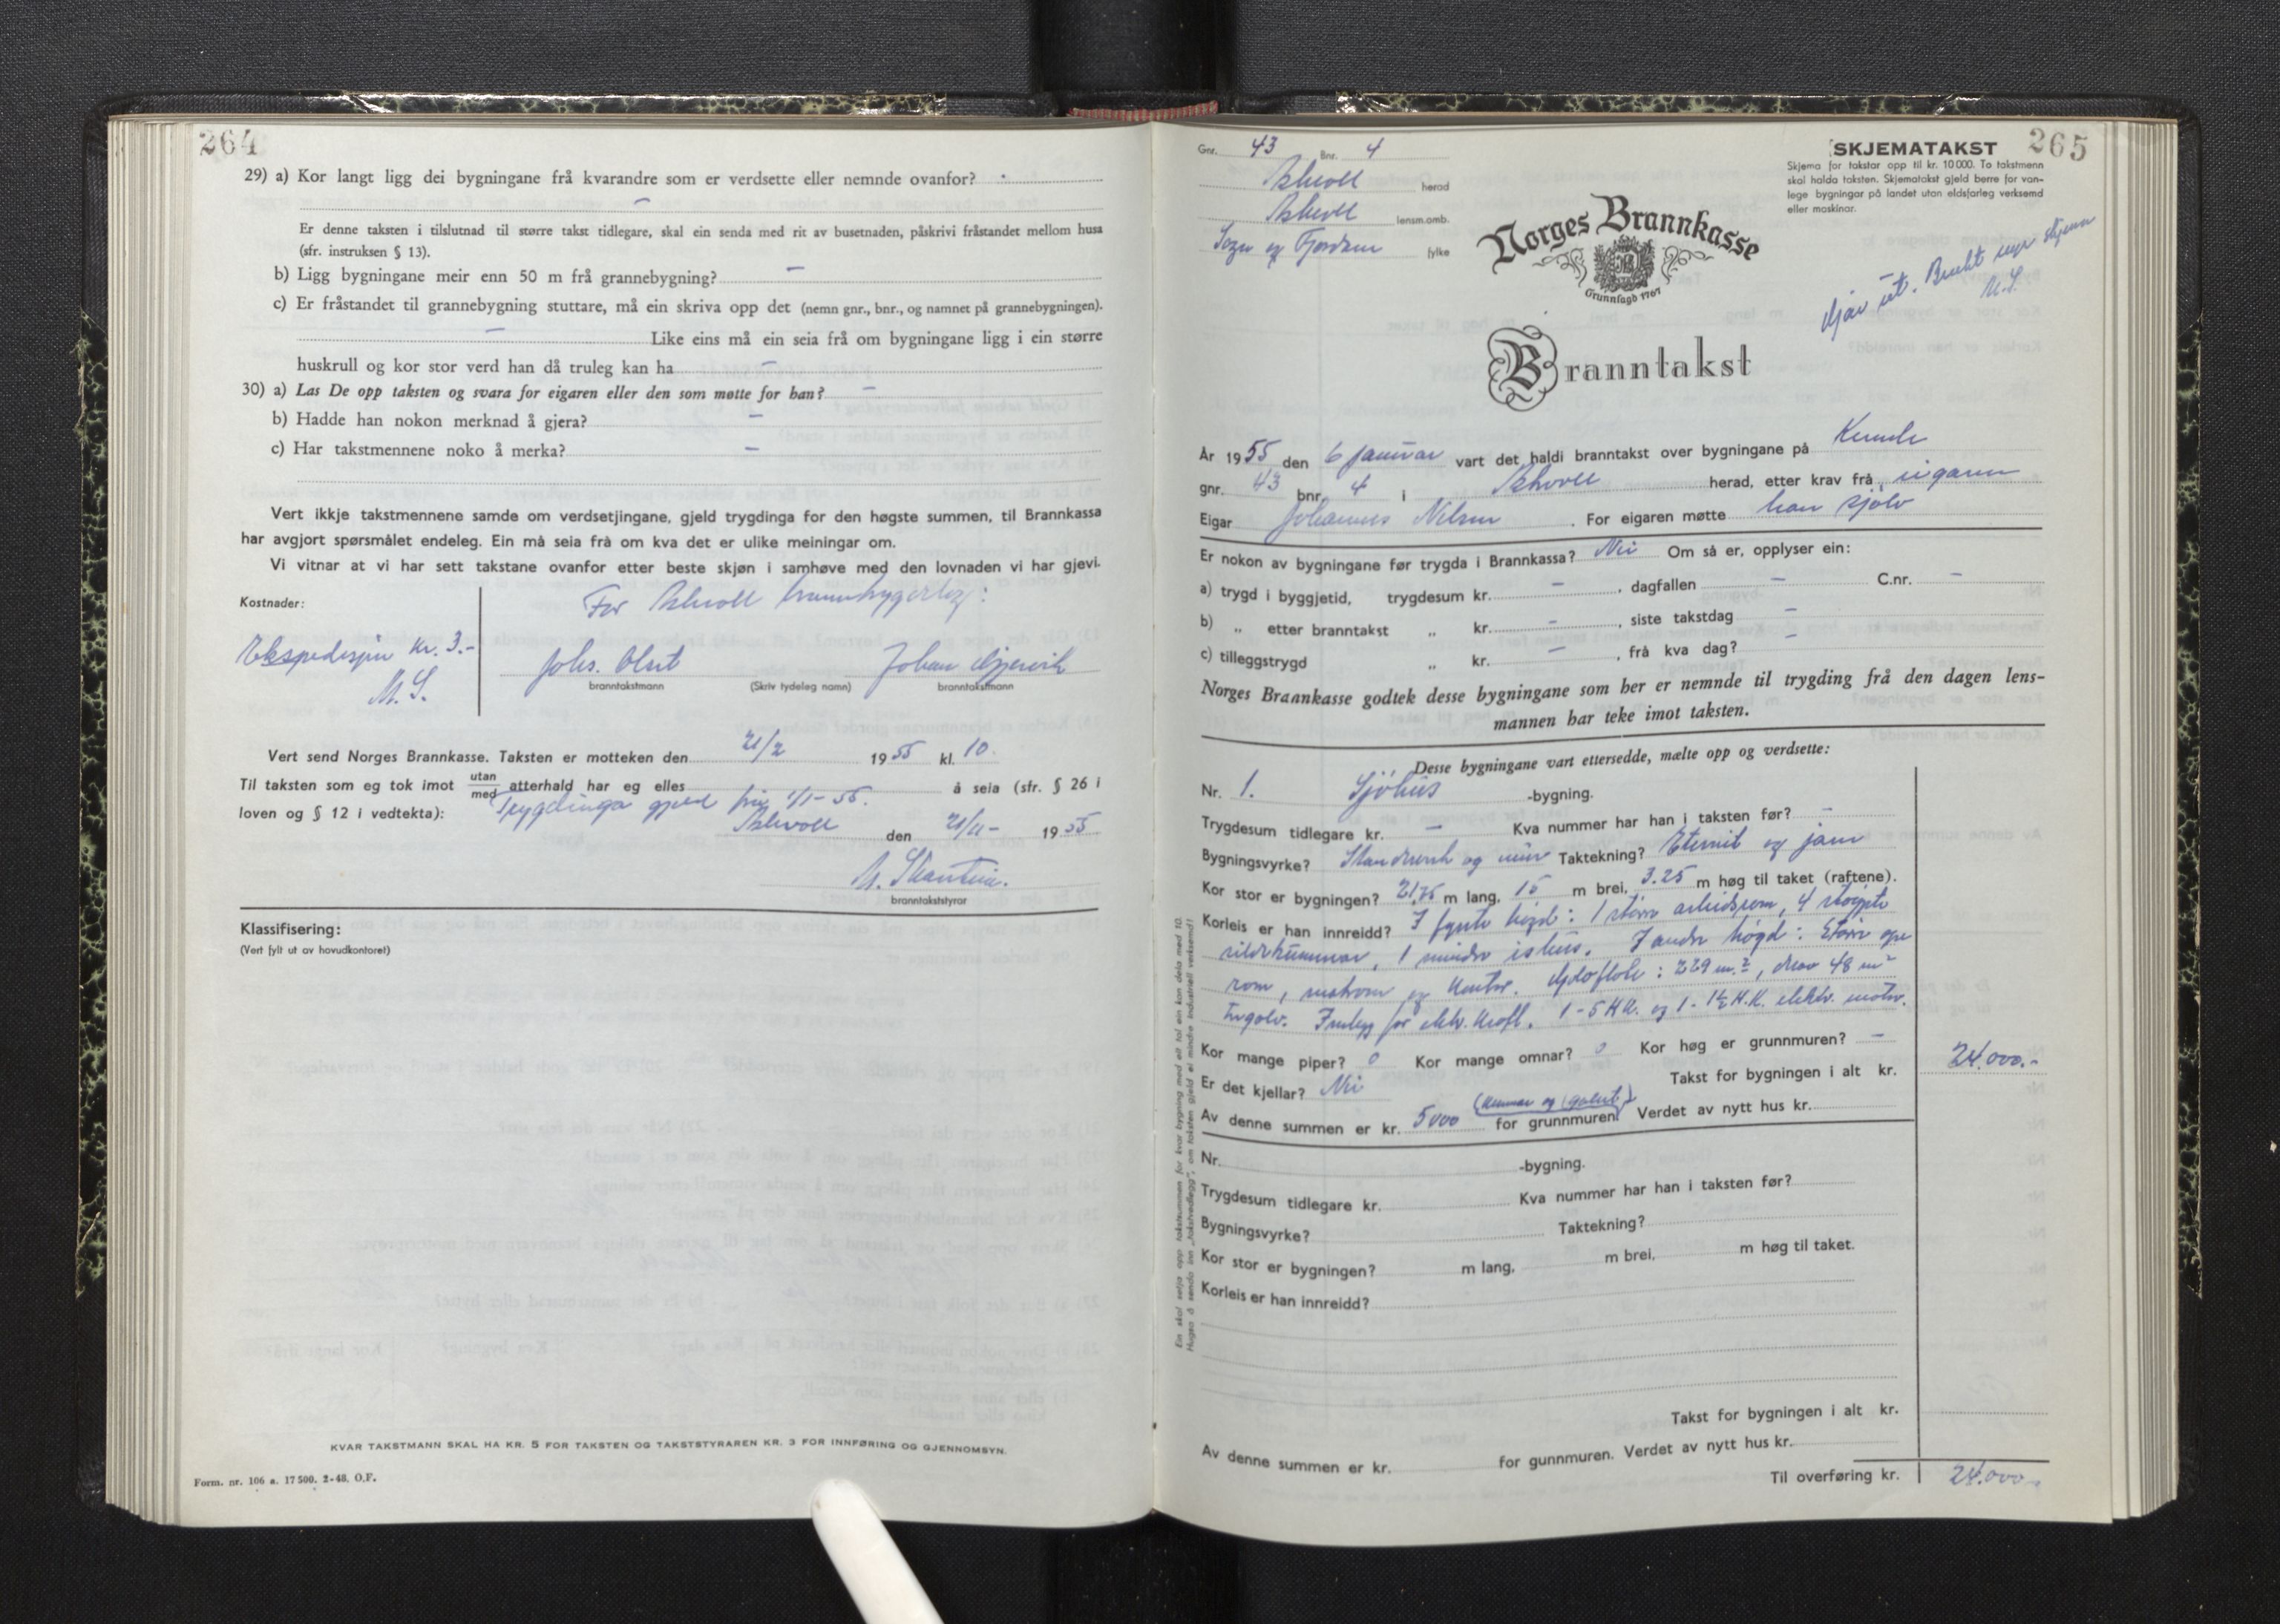 264
29) a) Kor langt ligg dei bygningane frå kvarandre som er verdsette eller nemnde ovanfor?
—
Er denne taksten i tilslutnad til større takst tidlegare, skal ein senda med rit av busetnaden, påskrivi fråstandet mellom husa
(sfr. instruksen § 13).
b) Ligg bygningane meir enn 50 m frå grannebygning? —
c) Er fråstandet til grannebygning stuttare, må ein skriva opp det (nemn gnr., bnr., og namnet på grannebygningen).
— Like eins må ein seia frå om bygningane ligg i ein større
huskrull og kor stor verd han då truleg kan ha —
30) a) Las De opp taksten og svara for eigaren eller den som møtte for han? —
b) Hadde han nokon merknad å gjera? —
c) Har takstmennene noko å merka? —
Vert ikkje takstmennene samde om verdsetjingane, gjeld trygdinga for den høgste summen, til Brannkassa
har avgjort spørsmålet endeleg. Ein må seia frå om kva det er ulike meiningar om.
Vi vitnar at vi har sett takstane ovanfor etter beste skjøn i samhøve med den lovnaden vi har gjevi.
Kostnader:
For Askvoll branntrygdelag:
Ekspedisjon kr. 3.-
M.S.
Johs. Olset Johan
branntakstmann (Skriv tydeleg namn) branntakstmann
Vert send Norges Brannkasse. Taksten er motteken den 21/2 1955 kl. 10.
Til taksten som eg tok imot utan/med atterhald har eg elles å seia (sfr. § 26 i
loven og § 12 i vedtekta): Trygdinga gjeld frå 1/1-55.
Askvoll den 21/2- 1955
M.
branntakststyrar
Klassifisering:
(Vert fylt ut av hovudkontoret)
KVAR TAKSTMANN SKAL HA KR. 5 FOR TAKSTEN OG TAKSTSTYRAREN KR. 3 FOR INNFØRING OG GJENNOMSYN.
Form. nr. 106 a. 17 500. 2-48. O.F.
265
SKJEMATAKST
Skjema for takstar opp til kr. 10 000. To takstmenn
skal halda taksten. Skjematakst gjeld berre for van-
lege bygningar på landet utan eldsfarleg verksemd
eller maskinar.
Gnr. 43 Bnr. 4
Askvoll herad
Askvoll lensm.omb.
Sogn og Fjordane fylke
Norges Brannkasse
Grunnlagd 1767
Går ut. Brukt nye skjema
M.S.
Branntakst
År 1955 den 6 januar vart det haldi branntakst over bygningane på
gnr. 43 bnr. 4 i Askvoll herad, etter krav frå eigaren
Eigar Johannes Nilsen. For eigaren møtte han sjølv
Er nokon av bygningane før trygda i Brannkassa? Nei Om så er, opplyser ein:
a) trygd i byggjetid, trygdesum kr. —, dagfallen — C.nr. —
b) „ etter branntakst „ kr. —, siste takstdag —
c) tilleggstrygd „ kr. —, frå kva dag? —
Norges Brannkasse godtek desse bygningane som her er nemnde til trygding frå den dagen lens-
mannen har teke imot taksten.
Desse bygningane vart ettersedde, mælte opp og verdsette:
Nr. 1. Sjöhus -bygning.
Trygdesum tidlegare kr. — Kva nummer har han i taksten før? —
Bygningsvyrke? Standverk og mur Taktekning? Eternit og jarn
Kor stor er bygningen? 21,75 m lang, 15 m brei, 3.25 m høg til taket (raftene).
Korleis er han innreidd? I fyrste högd: 1 större arbeidsrom, 4 stöypte
sildekummar, 1 mindre ishus. I andre högd: Större ope
rom, matrom og kontor. Golvflate: 229 m.², derav 48 m²
tregolv. Innlegg for elektr. kraft. 1 - 5 HK. og 1 - 1½ H.K. elektr. motor.
Kor mange piper? 0 Kor mange omnar? 0 Kor høg er grunnmuren? —
Er det kjellar? Nei Takst for bygningen i alt kr. 24.000.-
(kummar og golvet)
Av denne summen er kr. 5000 for grunnmuren. Verdet av nytt hus kr.
Nr. -bygning.
Trygdesum tidlegare kr. Kva nummer har han i taksten før?
Bygningsvyrke? Taktekning?
Kor stor er bygningen? m lang, m brei, m høg til taket.
Korleis er han innreidd?
Takst for bygningen i alt kr.
Av denne summen er kr. for gunnmuren. Verdet av nytt hus kr.
Til overføring kr. 24.000.-
Ein skal setja opp takstsummen for kvar bygning med eit tal ein kan dela med 10.
Hugsa å senda inn „takstvedlegg", om taksten gjeld ei mindre industriell verksemd!